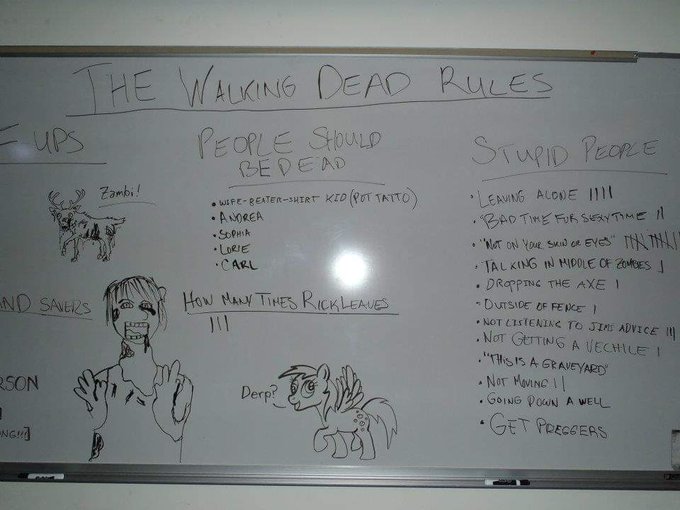 THE WALKING DEAD RULES
UPS
Zambi!
AND SAVERS
RSON
NG!!!]
PEOPLE SHOULD
BE DEAD
• WIFE-BEATER-SHIRT KID (POT TATTO)
• ANDREA
• SOPHIA
• LORIE
• CARL
HOW MANY TIMES RICK LEAVES
III
Derp?
STUPID PEOPLE
• LEAVING ALONE IIII
• "BAD TIME FUR SEXY TIME II
• "NOT ON YOUR SKIN OR EYES"
• TALKING IN MIDDLE OF ZOMBIES I
• DROPPING THE AXE I
• OUTSIDE OF FENCE I
• NOT LISTENING TO JIMS ADVICE III
• NOT GETTING A VECHILE I
• "THIS IS A GRAVEYARD"
• NOT MOVING II
• GOING DOWN A WELL
• GET PREGGERS